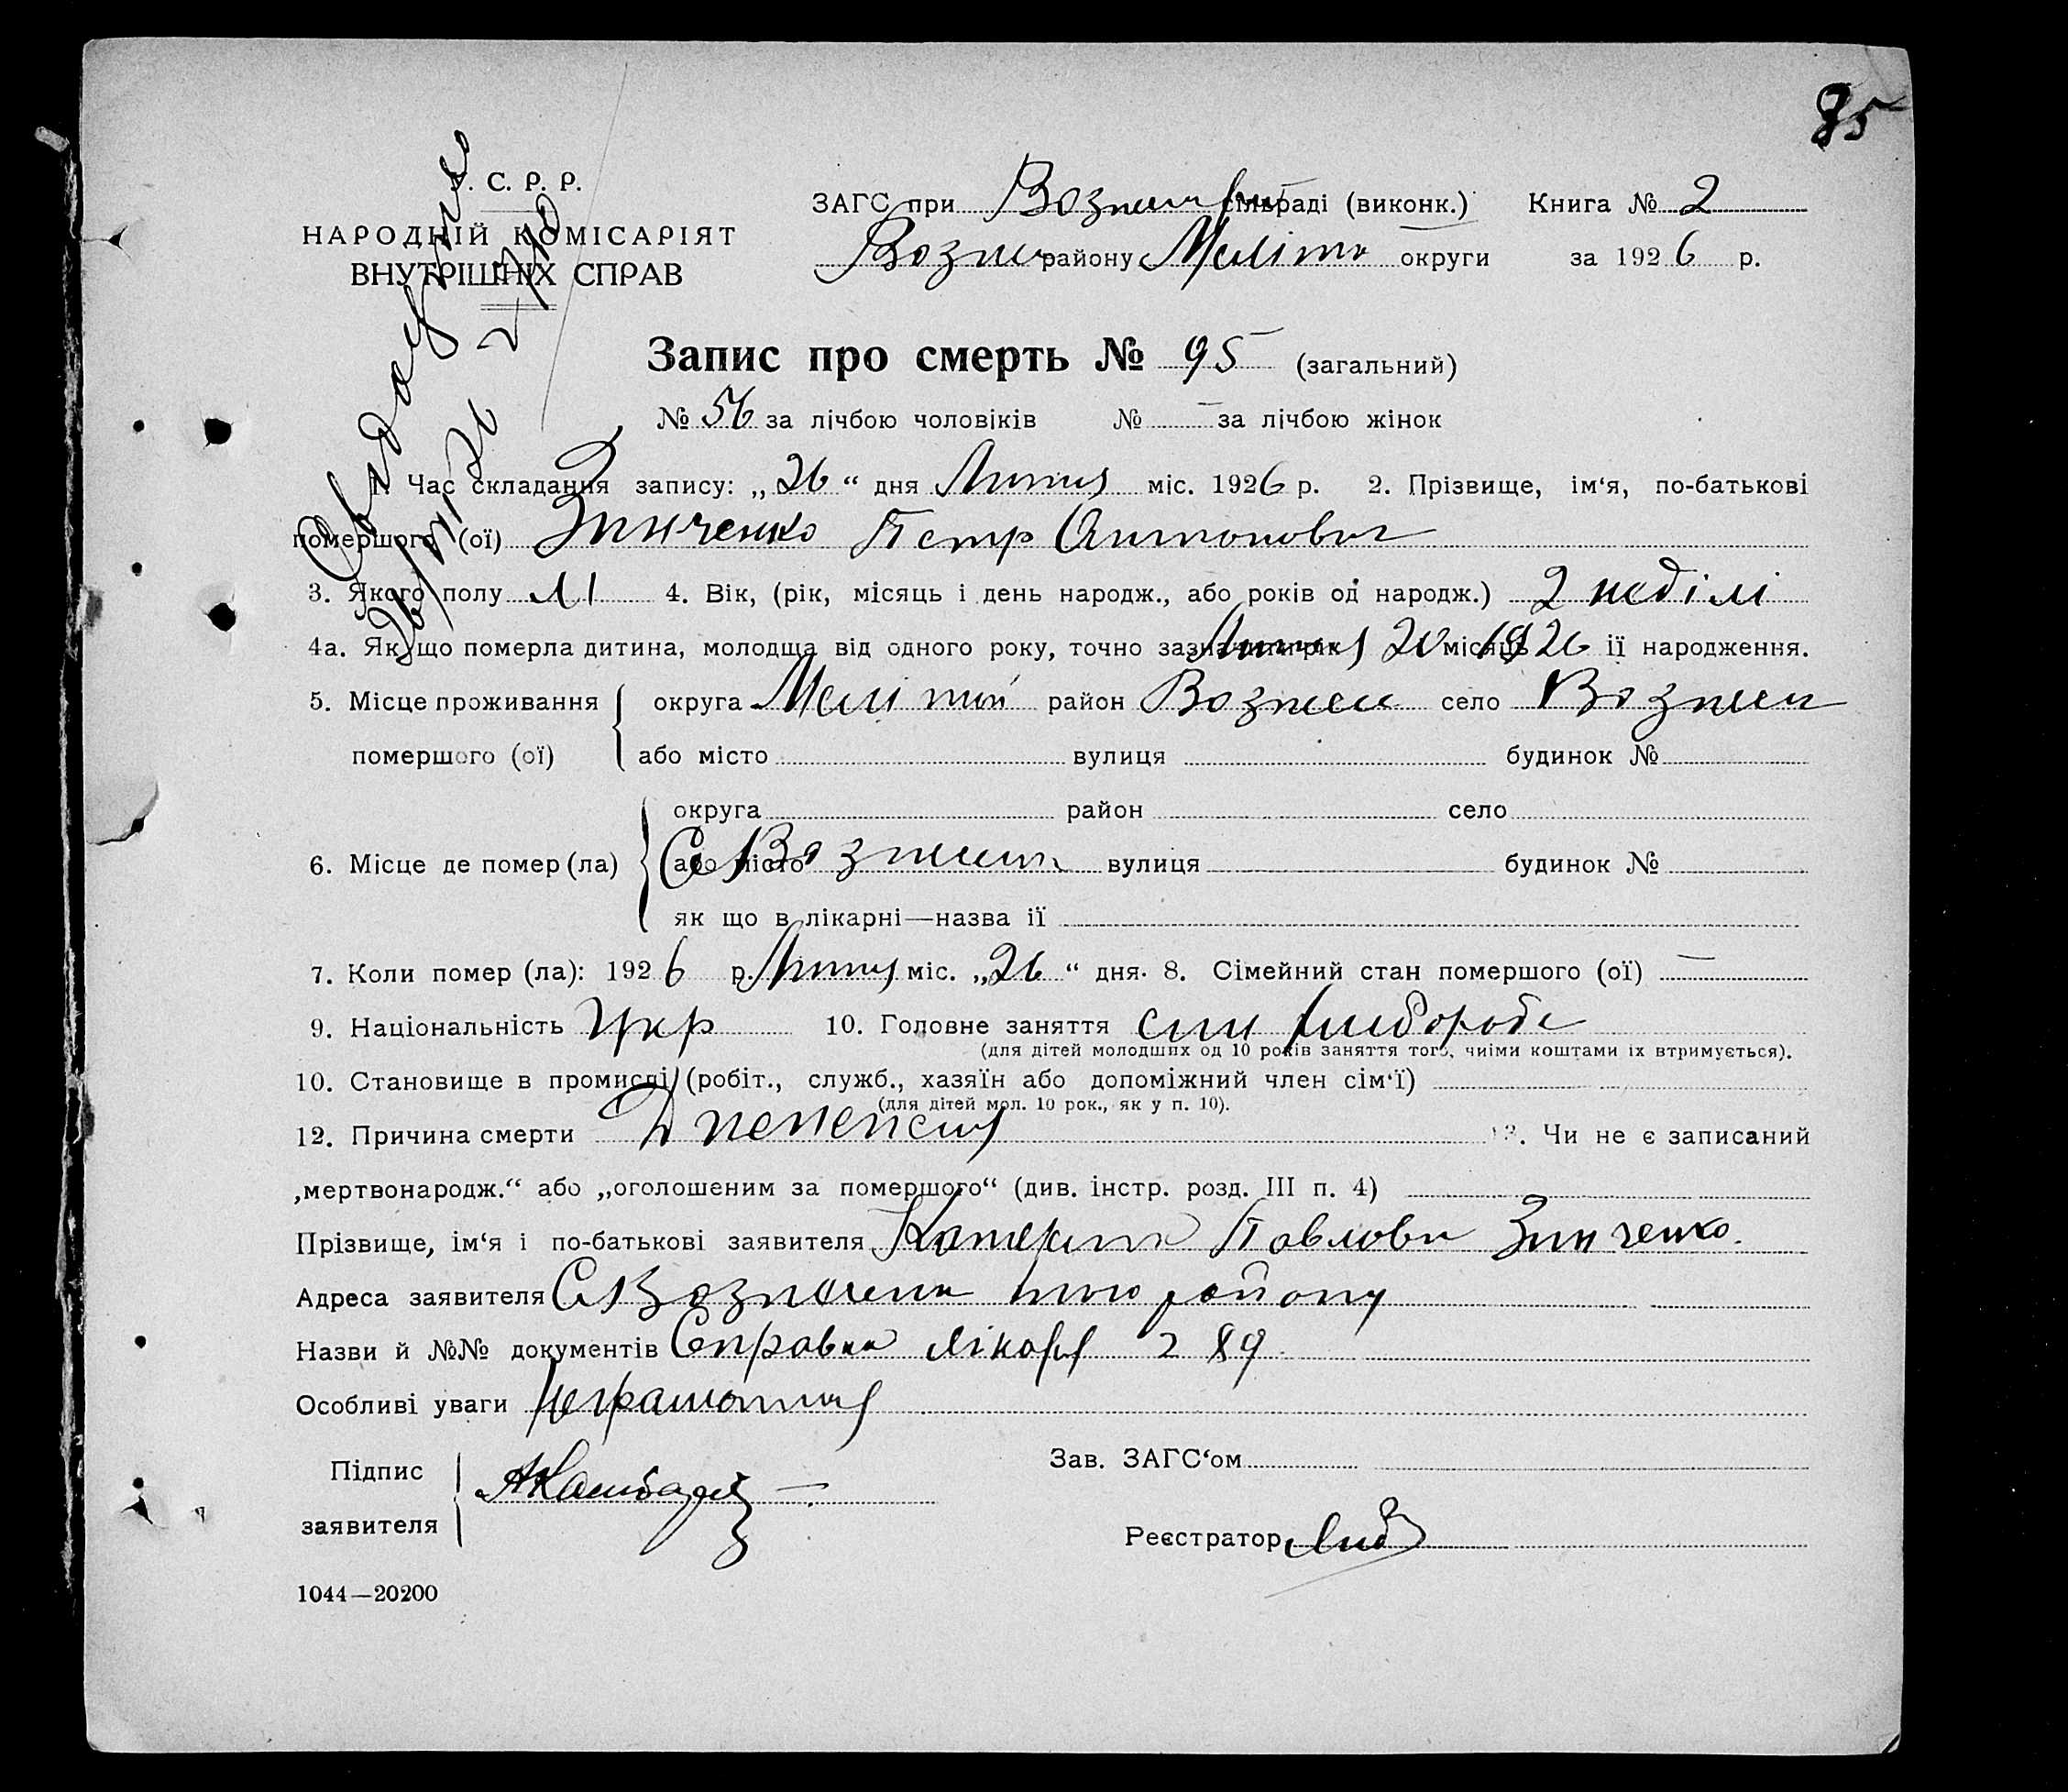 85
У. С. Р. Р.
НАРОДНІЙ КОМІСАРІЯТ
ВНУТРІШНІХ СПРАВ
ЗАГС при Вознесен сільраді (виконк.) Книга № 2
Вознес району Меліт округи за 1926 р.
Запис про смерть № 95 (загальний)
№ 56 за лічбою чоловіків № — за лічбою жінок
1. Час складання запису: „26“ дня Липня міс. 1926 р. 2. Прізвище, ім‘я, по-батькові
помершого (ої) Зинченко Петр Антонович
3. Якого полу М 4. Вік, (рік, місяць і день народж., або років од народж.) 2 неділі
4а. Як що померла дитина, молодша від одного року, точно зазначити рік Липня 20 місяць 1926 її народження.
5. Місце проживання округа Мелітоп район Вознесе село Вознесен
помершого (ої) або місто вулиця будинок №
округа район село
6. Місце де помер (ла) або місто С Вознесен вулиця будинок №
як що в лікарні—назва її
7. Коли помер (ла): 1926 р. Липня міс. „26“ дня. 8. Сімейний стан помершого (ої) —
9. Національність Укр 10. Головне заняття син хлебороба
(для дітей молодших од 10 років заняття того, чиїми коштами їх втримується).
10. Становище в промислі (робіт., служб., хазяїн або допоміжний член сім‘ї)
(для дітей мол. 10 рок., як у п. 10).
12. Причина смерти Диспепсия 13. Чи не є записаний
„мертвонародж.“ або „оголошеним за помершого“ (див. інстр. розд. III п. 4)
Прізвище, ім‘я і по-батькові заявителя Катерина Павловн Зинченко.
Адреса заявителя С Вознесенк того району
Назви й №№ документів Справка лікаря 289
Особливі уваги Неграмотная
Підпис
заявителя
Зав. ЗАГС‘ом
Реєстратор
1044—20200